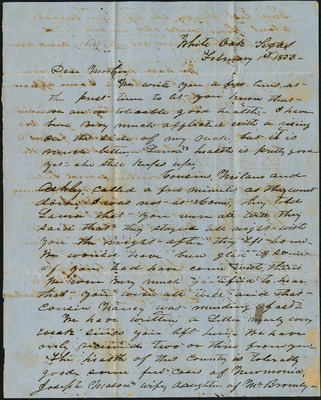 White Oak Texas
February 1st 1853
Dear Mother
We write you a few lines at
the present time to let you know that
we are in tolerable good health I have
been very much afflicted with a rising
on the side of my nose but it is
much better Laura's health is pretty good
yet she still keeps up
Cousins Milano and
called a few minutes as they went
down I was not at Home, they told
Laura that you were all well they
said that they stayed all night with
you the night after they left home
We would have been glad if some
of you had have come with them
We were very much gratified to hear
that you were all well and that
Cousin Nancy was mending fast
We have written a letter nearly every
week since you left here we have
only received two or three from you
The health of this County is tolerably
good some few cases of
Joseph Mason wife daughter of Mr